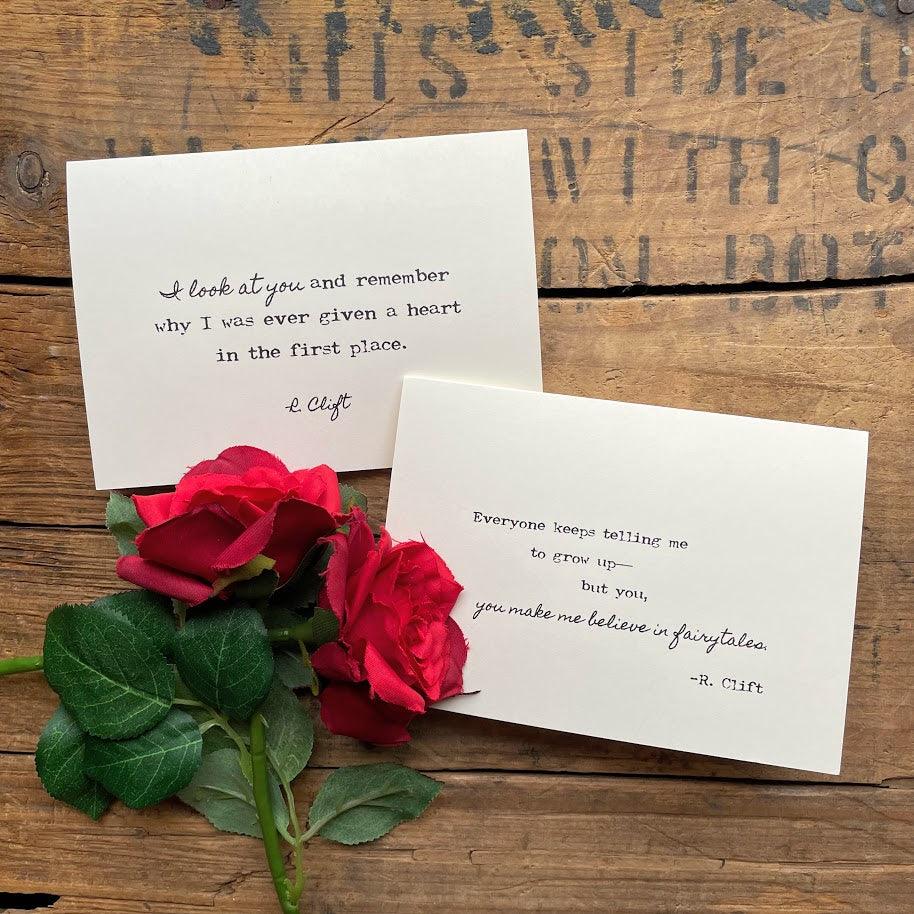 THIS SIDE U
WITH C
ON BOT
I look at you and remember
why I was ever given a heart
in the first place.
R. Clift
Everyone keeps telling me
to grow up—
but you,
you make me believe in fairytales.
-R. Clift